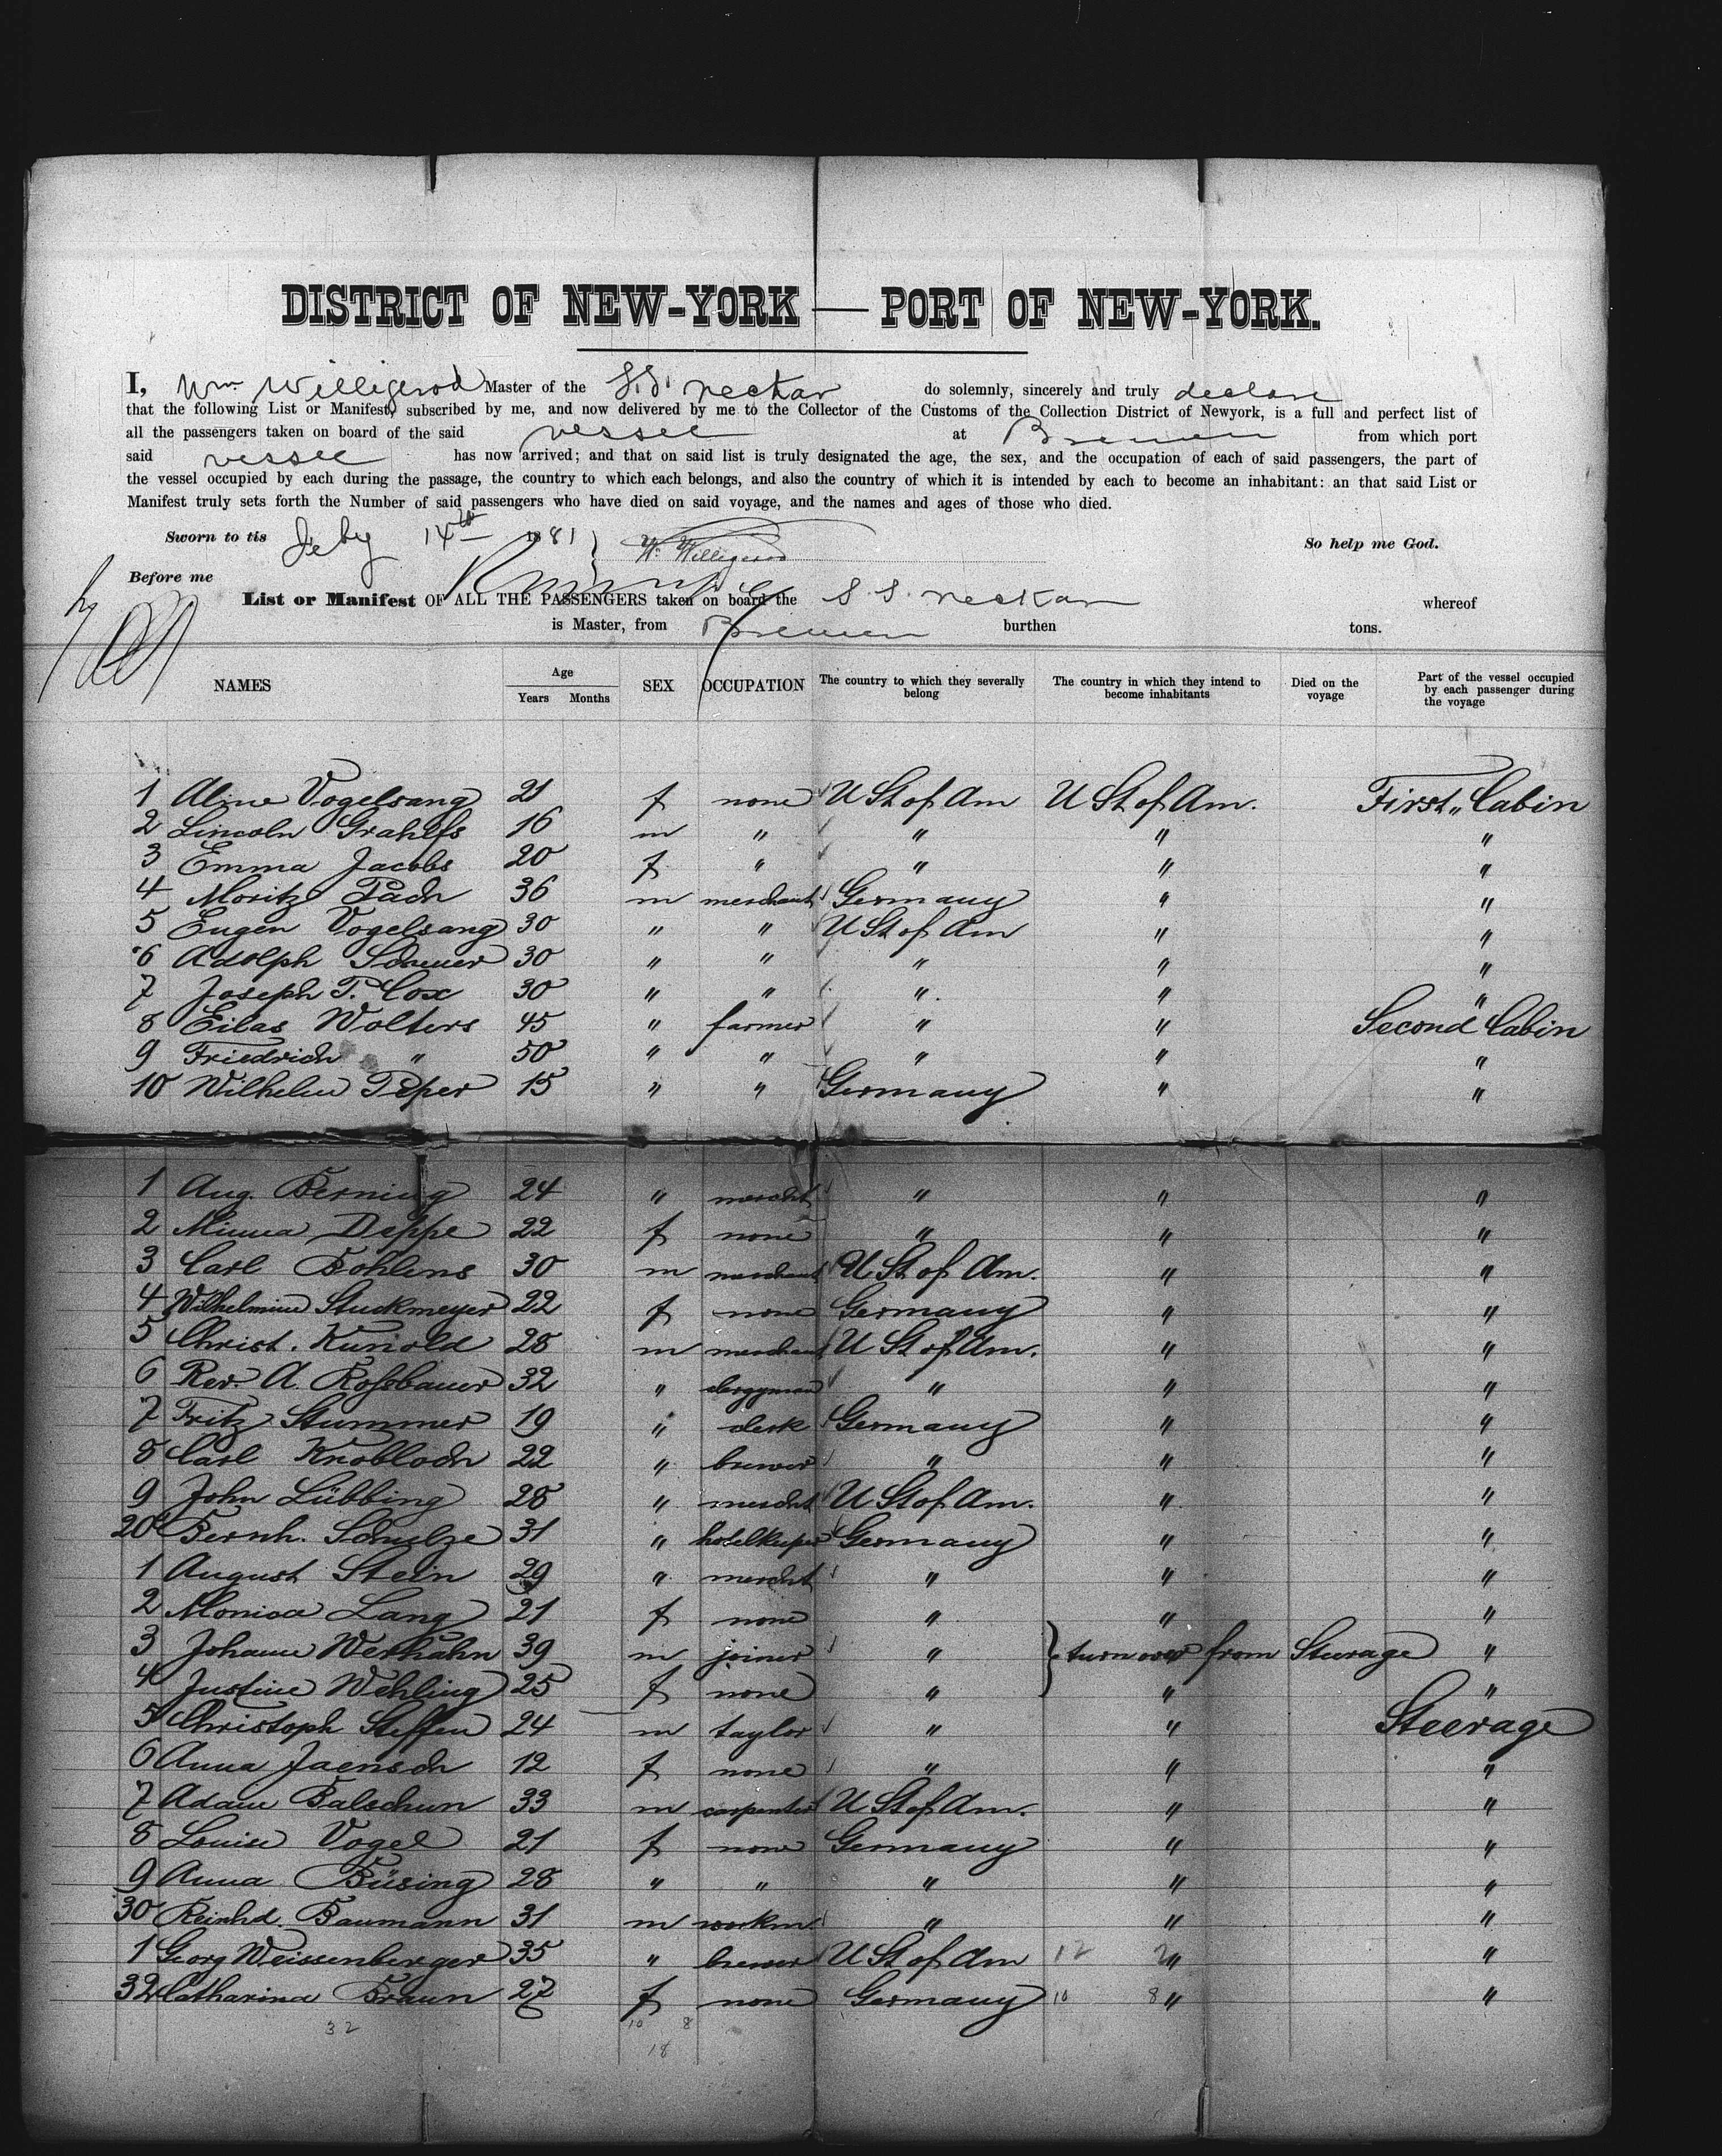 DISTRICT OF NEW-YORK — PORT OF NEW-YORK.
I, Wm Willigerod Master of the S.S. Neckar do solemnly, sincerely and truly declare
that the following List or Manifest, subscribed by me, and now delivered by me to the Collector of the Customs of the Collection District of Newyork, is a full and perfect list of
all the passengers taken on board of the said vessel at Bremen from which port
said vessel has now arrived; and that on said list is truly designated the age, the sex, and the occupation of each of said passengers, the part of
the vessel occupied by each during the passage, the country to which each belongs, and also the country of which it is intended by each to become an inhabitant: an that said List or
Manifest truly sets forth the Number of said passengers who have died on said voyage, and the names and ages of those who died.
Sworn to tis Feby 14th 1881 } W. Willigerod So help me God.
Before me
List or Manifest OF ALL THE PASSENGERS taken on board the S.S. Neckar whereof
is Master, from Bremen burthen tons.
NAMES Age Years Months SEX OCCUPATION The country to which they severally belong The country in which they intend to become inhabitants Died on the voyage Part of the vessel occupied by each passenger during the voyage
1 Aline Vogelsang 21 f none U St of Am U St of Am. First Cabin
2 Lincoln Grahlfs 16 m " " " "
3 Emma Jacobs 20 f " " " "
4 Moritz 36 m merchant Germany " "
5 Eugen Vogelsang 30 " " U St of Am " "
6 Adolph 30 " " " " "
7 Joseph T. Cox 30 " " " " "
8 Eilas Wolters 45 " farmer " " Second Cabin
9 Friedrich " 50 " " " " "
10 Wilhelm Peper 15 " " Germany " "
1 Aug. Berning 24 " mercht " " "
2 Minna Deppe 22 f none " " "
3 Carl Bohlens 30 m merchant U St of Am. " "
4 Wilhelmine Stuckmeyer 22 f none Germany " "
5 Christ. Kunold 28 m merchant U St of Am. " "
6 Rev. A. Rossbauer 32 " clergyman " " "
7 Fritz Stummer 19 " clerk Germany " "
8 Carl Knobloch 22 " brewer " " "
9 John Lübbing 28 " mercht U St of Am. " "
20 Bernh. Schulze 31 " hotelkeeper Germany " "
1 August Stein 29 " mercht " " "
2 Monica Lang 21 f none " " "
3 Johann Werhahn 39 m joiner " } turn over from Steerage "
4 Justine Wehling 25 f none " " "
5 Christoph Steffen 24 m taylor " " Steerage
6 Anna Jaensch 12 f none " " "
7 Adam Balschun 33 m carpenter U St of Am. " "
8 Louise Vogel 21 f none Germany " "
9 Anna Büsing 28 " " " " "
30 Reinhd. Baumann 31 m workm. " " "
1 Georg Weissenberger 35 " brewer U St of Am 12 2 " "
32 Catharina Braun 27 f none Germany 10 8 " "
32 10 8
18